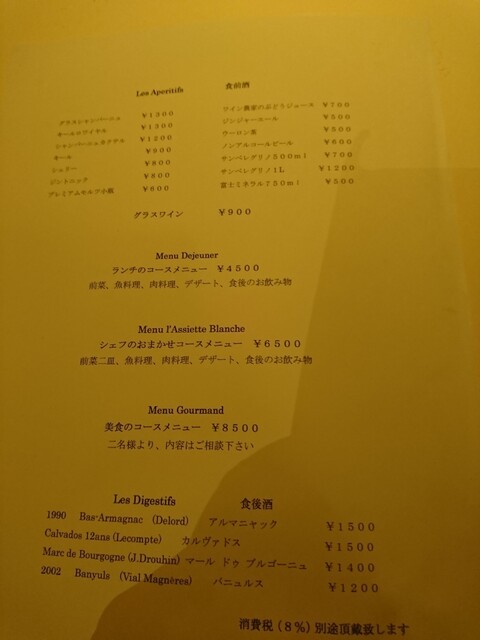 Les Aperitifs 食前酒
グラスシャンパーニュ ￥1300
キールロワイヤル ￥1300
シャンパーニュカクテル ￥1200
キール ￥900
シェリー ￥800
ジントニック ￥800
プレミアムモルツ小瓶 ￥600
ワイン農家のぶどうジュース ￥700
ジンジャーエール ￥500
ウーロン茶 ￥500
ノンアルコールビール ￥600
サンペレグリノ500ml ￥700
サンペレグリノ1L ￥1200
富士ミネラル750ml ￥500
グラスワイン ￥900
Menu Dejeuner
ランチのコースメニュー ￥4500
前菜、魚料理、肉料理、デザート、食後のお飲み物
Menu l'Assiette Blanche
シェフのおまかせコースメニュー ￥6500
前菜二皿、魚料理、肉料理、デザート、食後のお飲み物
Menu Gourmand
美食のコースメニュー ￥8500
二名様より、内容はご相談下さい
Les Digestifs 食後酒
1990 Bas-Armagnac (Delord) アルマニャック ￥1500
Calvados 12ans (Lecompte) カルヴァドス ￥1500
Marc de Bourgogne (J.Drouhin) マール ドゥ ブルゴーニュ ￥1400
2002 Banyuls (Vial Magnères) バニュルス ￥1200
消費税(8%)別途頂戴致します